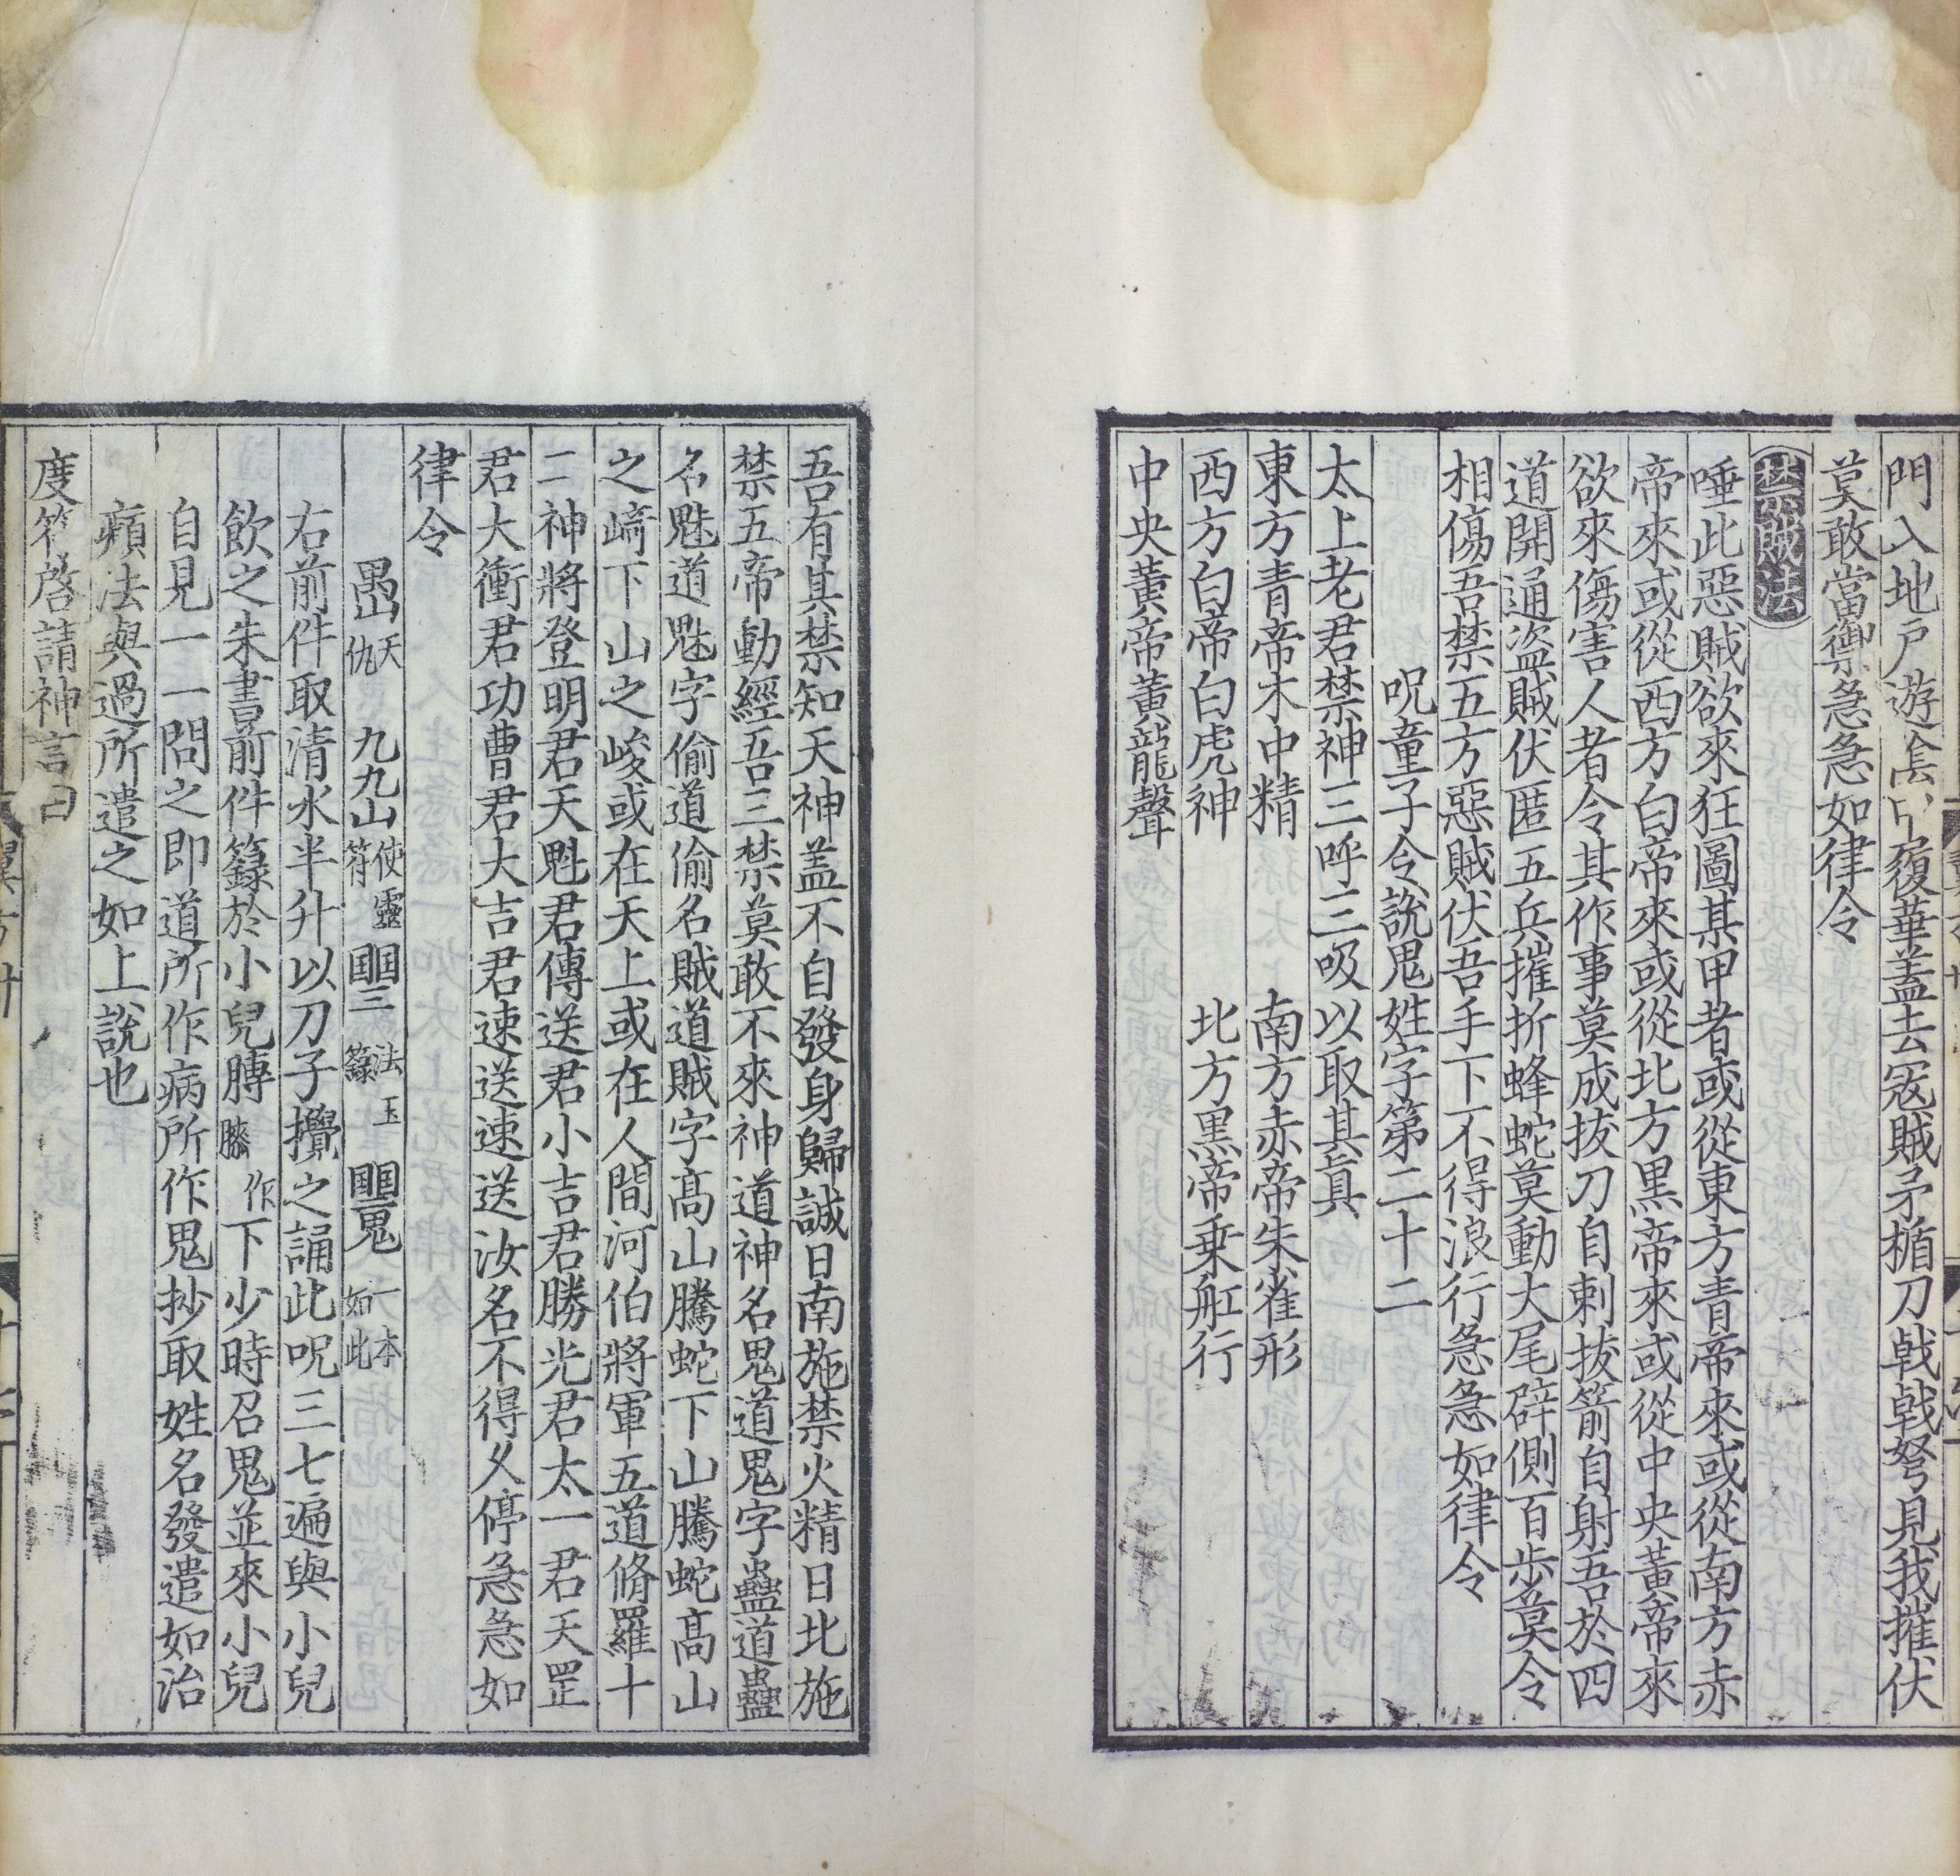 門入地戸遊陰中履華蓋去寇賊矛楯刀戟戟弩見我摧伏
莫敢當禦急急如律令
禁賊法
唾此惡賊欲來狂圖某甲者或從東方青帝來或從南方赤
帝來或從西方白帝來或從北方黒帝來或從中央黃帝來
欲來傷害人者令其作事莫成拔刀自刺拔箭自射吾於四
道開通盗賊伏匿五兵摧折蜂蛇莫動大尾辟側百步莫令
相傷吾禁五方惡賊伏吾手下不得浪行急急如律令
呪童子令說鬼姓字第二十二
太上老君禁神三呼三吸以取其真
東方青帝木中精　南方赤帝朱雀形
西方白帝白虎神　北方黒帝乗舡行
中央黃帝黃龍聲
吾有其禁知天神盖不自發身歸誠日南施禁火精日北施
禁五帝動經吾三禁莫敢不來神道神名鬼道鬼字蠱道蠱
名魅道魅字偷道偷名賊道賊字髙山騰蛇下山騰蛇髙山
之﨑下山之峻或在天上或在人間河伯將軍五道脩羅十
二神將登明君天魁君傳送君小吉君勝光君太一君天罡
君大衝君功曹君大吉君速送速送汝名不得乆停急急如
律令
天仇　九九山使靈符　三法玉籙　鬼一本如此
右前件取清水半升以刀子攪之誦此呪三七遍與小兒
飲之朱書前件籙於小兒膊作膝下少時召鬼並來小兒
自見一一問之即道所作病所作鬼抄取姓名發遣如治
癩法與過所遣之如上說也
度符啓請神言曰